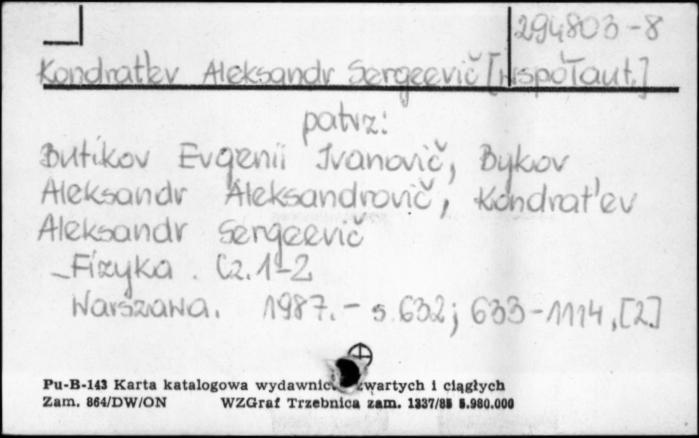 294803-8
Kondrat'ev Aleksandr Sergeevič [współaut.]
patrz:
Butikov Evgenii Ivanovič, Bykov
Aleksandr Aleksandrovič, Kondrat'ev
Aleksandr Sergeevič
-Fizyka. Cz. 1-2
Warszawa. 1987.- s. 632; 633-1114, [2]
Pu-B-143 Karta katalogowa wydawnic zwartych i ciągłych
Zam. 864/DW/ON WZGraf Trzebnica zam. 1337/85 5.980.000